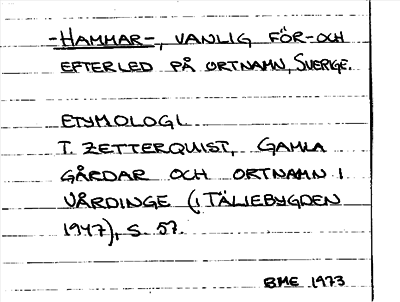 -HAMMAR-, VANLIG FÖR- OCH
EFTERLED PÅ ORTNAMN, SVERIGE.
ETYMOLOGI.
T. ZETTERQUIST, GAMLA
GÅRDAR OCH ORTNAMN I
VÅRDINGE (I TÄLJEBYGDEN
1947), S. 57.
BME 1973